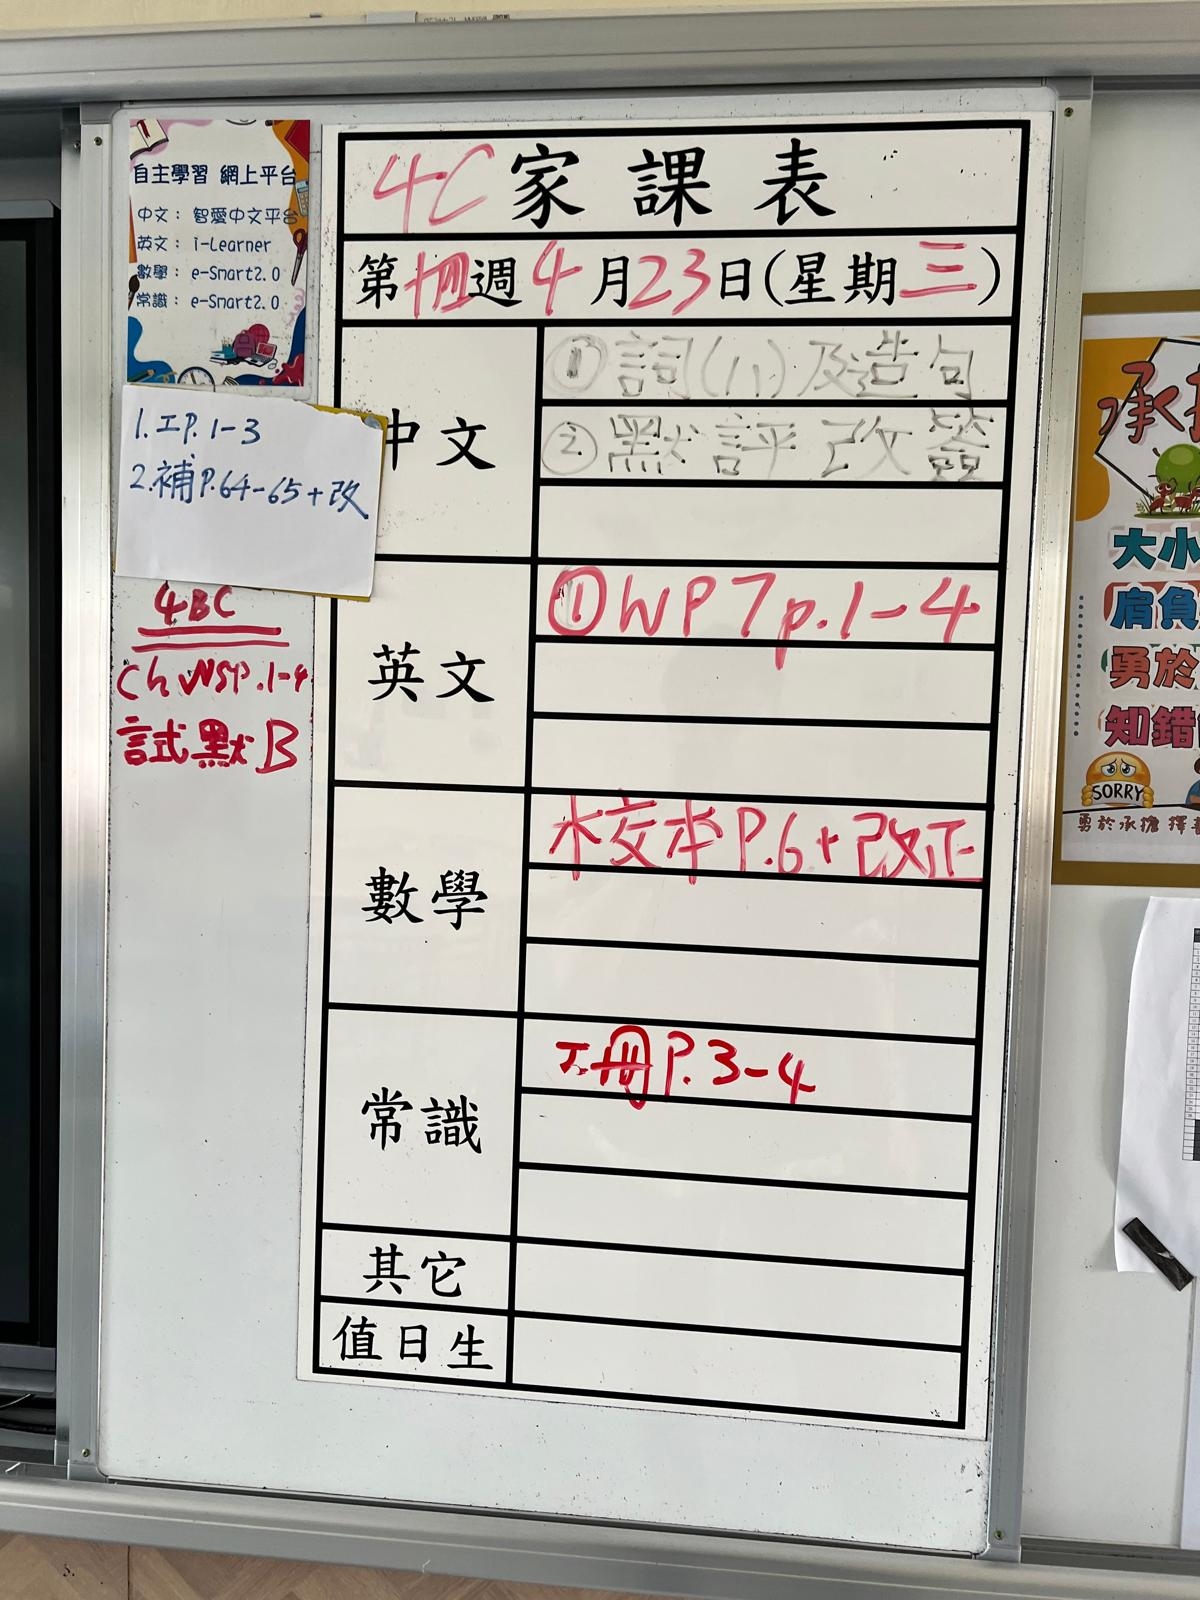 自主學習 網上平台
中文： 智愛中文平台
英文： i-Learner
數學： e-Smart2.0
常識： e-Smart2.0
1. 工P. 1-3
2. 補P.64-65+改
4BC
Ch WSP.1-4
試默B
4C 家課表
第 週 4月23日(星期三)
中文
① 詞(八)及造句
② 默評改簽
英文
① WP 7 p.1-4
數學
本P.6+改正
常識
冊P.3-4
其它
值日生
大小
肩負
勇於
知錯
SORRY
勇於承擔 擇